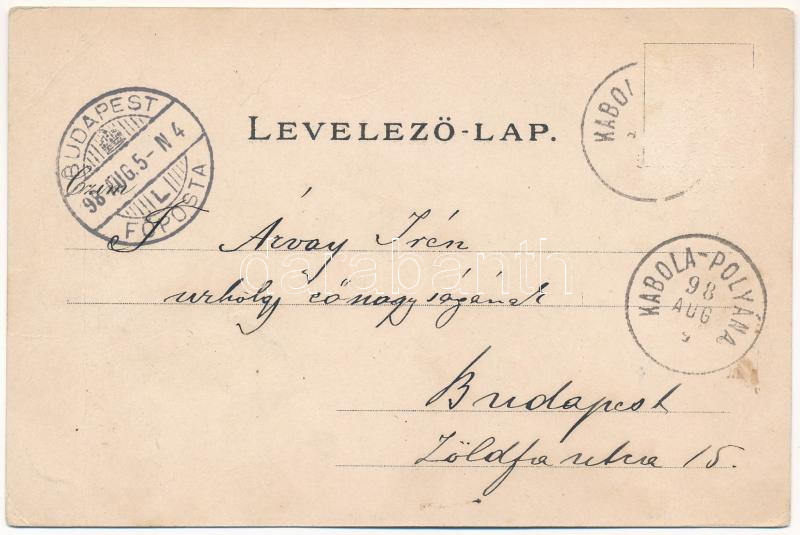 LEVELEZŐ-LAP.
BUDAPEST
98 AUG. 5 - N 4
L
FŐPOSTA
KABOL
Czim
T Árvay Irén
urhölgy őnagyságának
Budapest
Zöldfa utcza 15.
KABOLA-POLYÁNA
98
AUG
darabanth